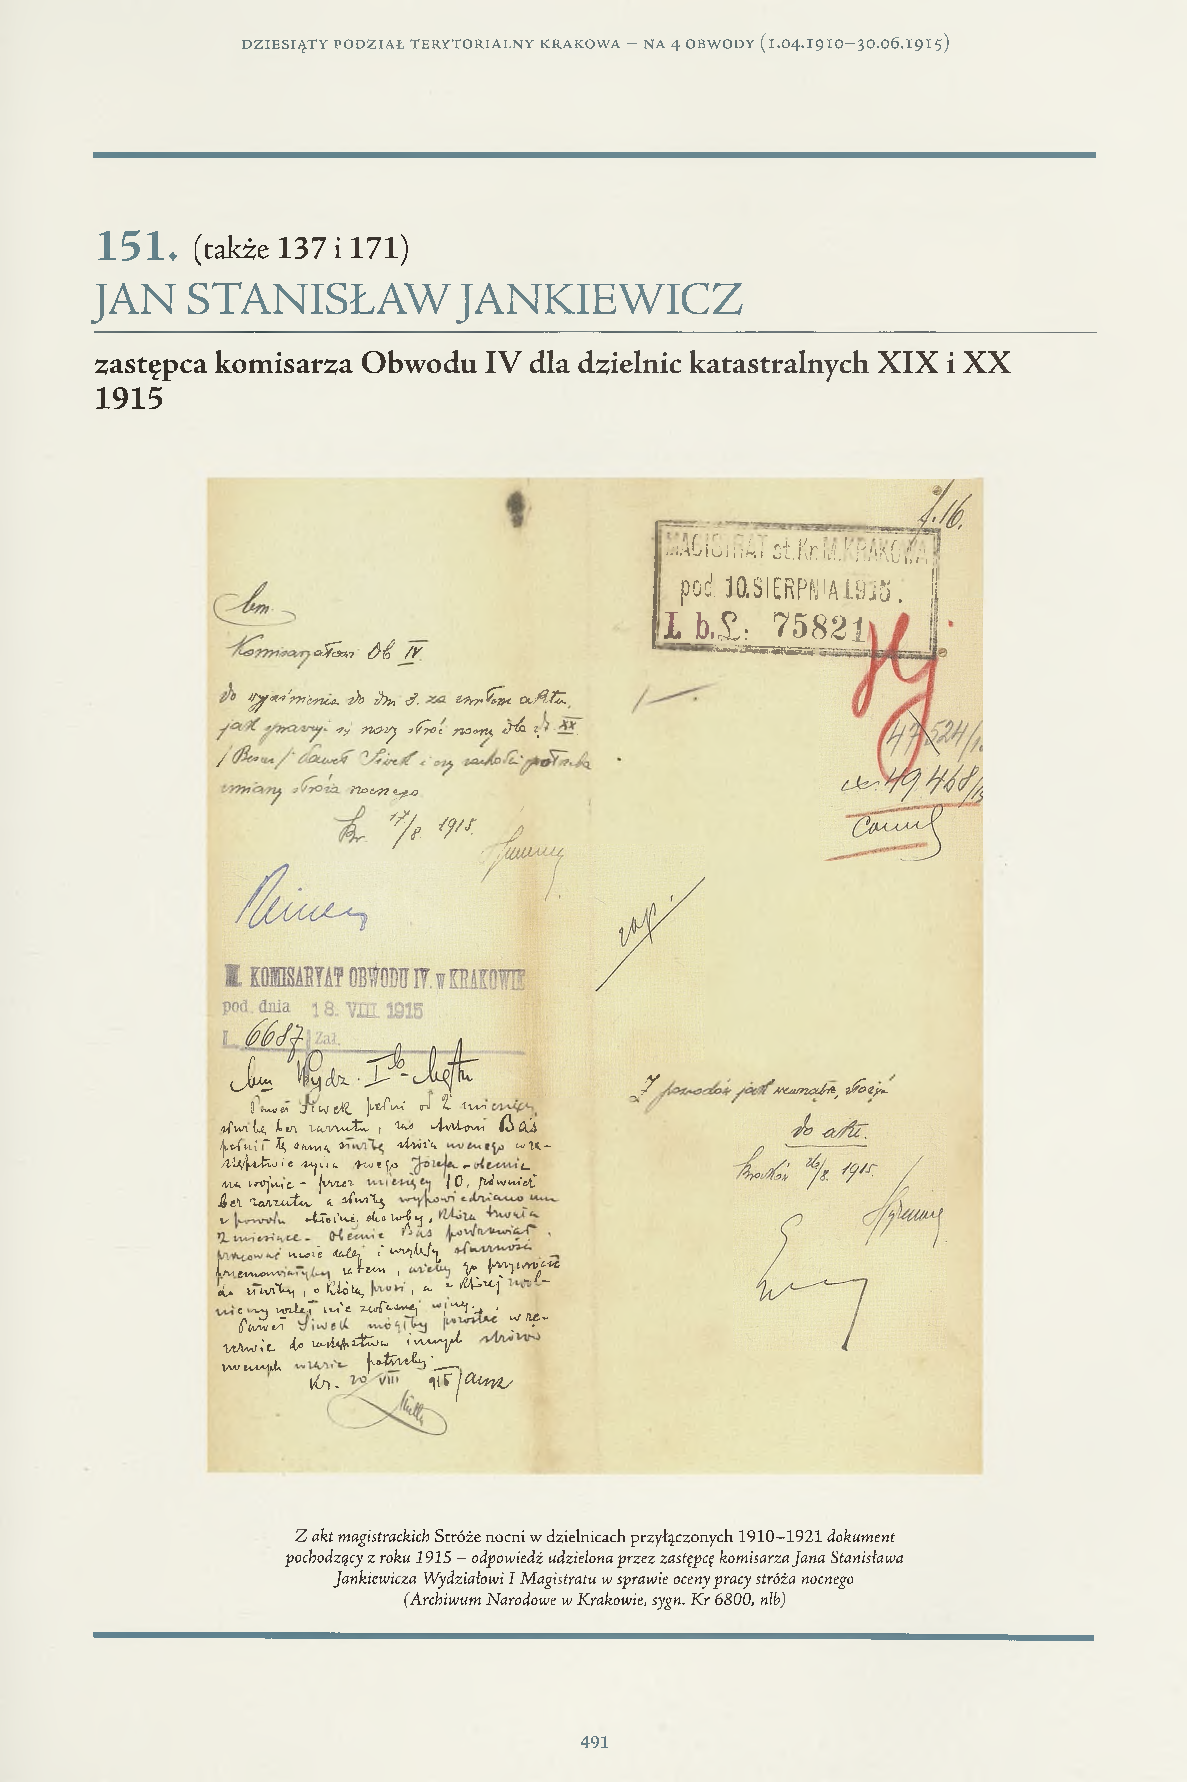 DZIESIĄTY PODZIAŁ TERYTORIALNY KRAKOWA – NA 4 OBWODY (1.04.1910–30.06.1915)
151. (także 137 i 171)
JAN STANISŁAW JANKIEWICZ
zastępca komisarza Obwodu IV dla dzielnic katastralnych XIX i XX
1915
f. 16.
MAGISTRAT st. Kr. M. KRAKOWA
pod. 10. SIERPNIA 1915.
I. b. L: 75821
bm.
Komisaryatowi Ob IV.
do wyjaśnienia do dni 3. za zwrotem aktu,
jak sprawuje się nowy stróż nocny dla dz XX
/ / Paweł Siwek i czy zachodzi potrzeba
zmiany stróża nocnego
Kr. 17/8. 1915.
47524/1
ex. 49468/15
zap.
M. KOMISARYAT OBWODU IV. w KRAKOWIE
pod. dnia 18. VIII 1915
L. 6687 Zał.
bm Wydz. I b - Mgtu
Paweł Siwek pełni od 2 miesięcy
służbę bez zarzutu, zaś Antoni Baś
pełnił tę samą służbę stróża nocnego w za-
stępstwie syna swego Józefa - obecnie
na wojnie - przez miesięcy 10, również
bez zarzutu a służbę wypowiedziano mu
z powodu choroby, która trwała
2 miesiące. - Obecnie Baś
pracować może dalej i względy
przemawiałyby zatem, ażeby go przyjąć
do służby, o którą prosi, a z której
nie z własnej winy.
Paweł Siwek mógłby pozostać w re-
zerwie do zastępstwa innych stróżów
nocnych w razie potrzeby.
Kr. 20 VIII 915
Z powodów jak wewnątrz, złożyć
do akt.
Kraków 26/8. 1915.
Z akt magistrackich Stróże nocni w dzielnicach przyłączonych 1910–1921 dokument
pochodzący z roku 1915 – odpowiedź udzielona przez zastępcę komisarza Jana Stanisława
Jankiewicza Wydziałowi I Magistratu w sprawie oceny pracy stróża nocnego
(Archiwum Narodowe w Krakowie, sygn. Kr 6800, nlb)
491